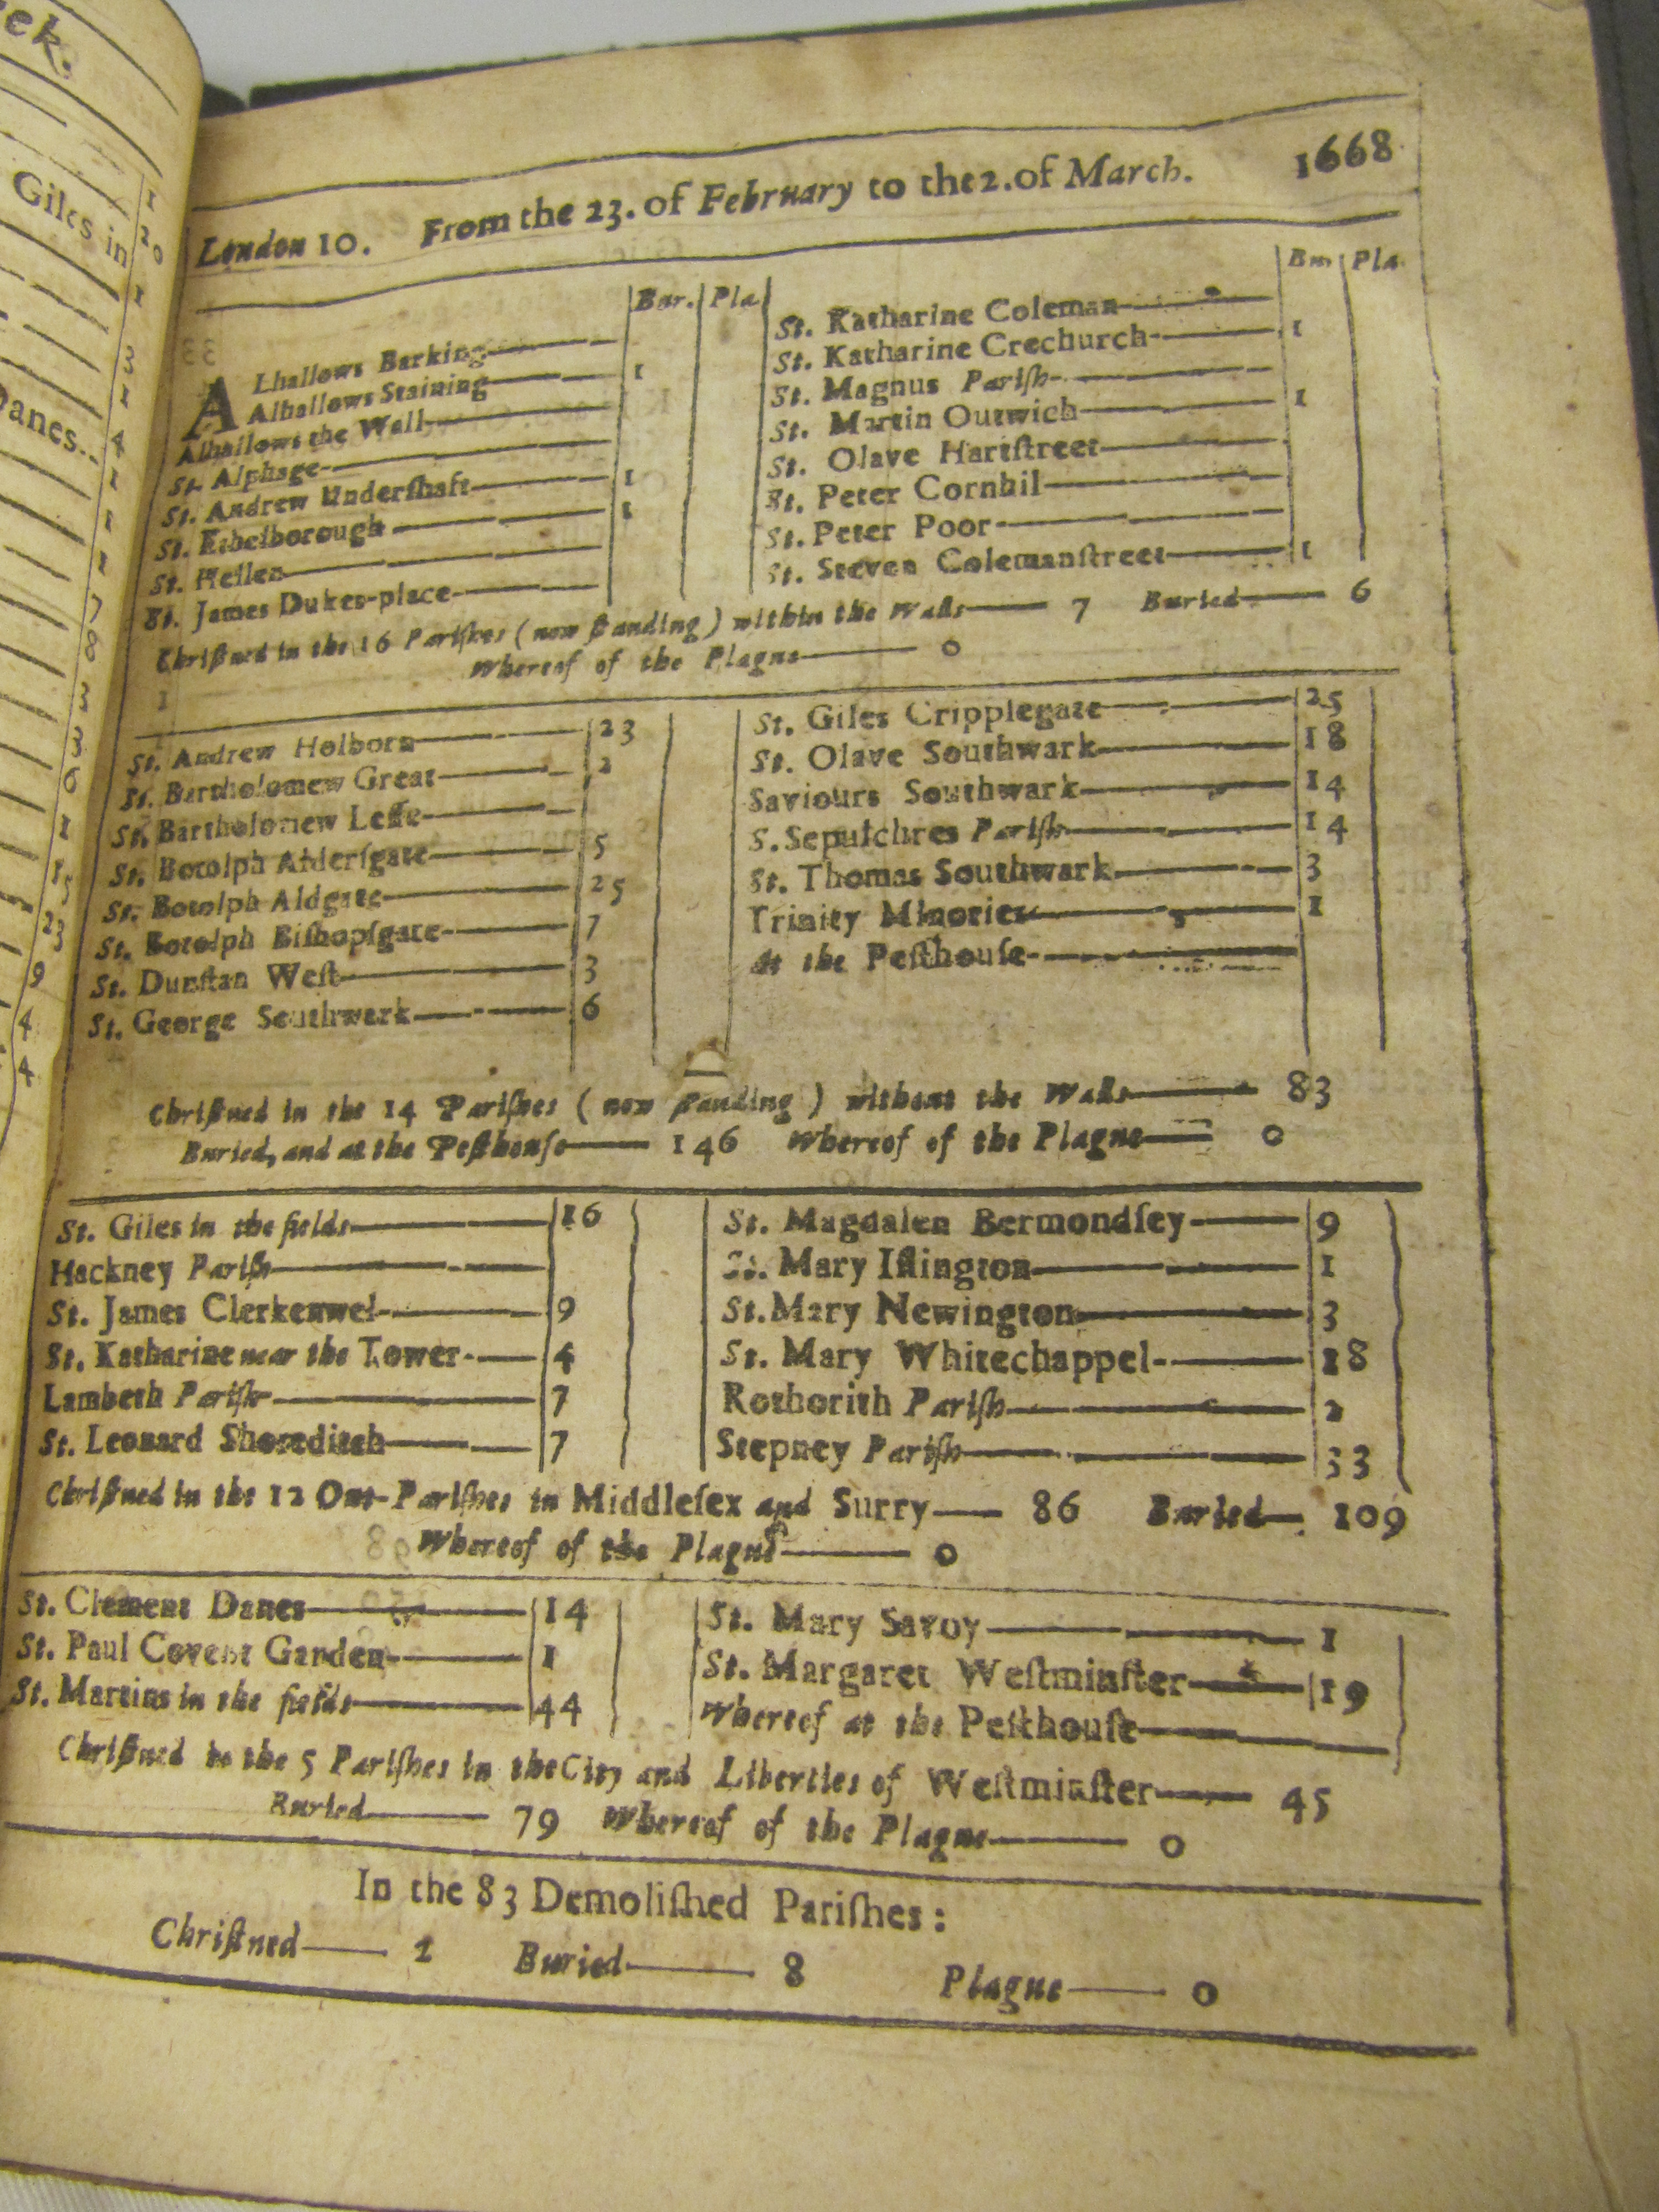 ek.
Giles in
Danes..
1
20
1
3
1
4
1
1
1
7
8
3
3
6
1
15
23
9
4
4
London 10. From the 23. of February to the 2. of March. 1668
Bur. Pla.
ALhallows Barking
Alhallows Staining 1
Alhallows the Wall
St. Alphage
St. Andrew Underſhaft 1
St. Ethelborough 1
St. Hellen
St. James Dukes-place
Bur. Pla.
St. Katharine Coleman
St. Katharine Crechurch 1
St. Magnus Pariſh
St. Martin Outwich 1
St. Olave Hartſtreet
St. Peter Cornhil
St. Peter Poor
St. Steven Colemanſtreet 1
Chriſtned in the 16 Pariſhes (now ſtanding) within the Walls 7 Buried 6
Whereof of the Plague 0
St. Andrew Holborn 23
St. Bartholomew Great 2
St. Bartholomew Leſſe
St. Botolph Alderſgate 5
St. Botolph Aldgate 25
St. Botolph Biſhopſgate 7
St. Dunſtan Weſt 3
St. George Southwark 6
St. Giles Cripplegate 25
St. Olave Southwark 18
Saviours Southwark 14
S. Sepulchres Pariſh 14
St. Thomas Southwark 3
Trinity Minories 1
At the Peſthouſe
Chriſtned in the 14 Pariſhes (now ſtanding) without the Walls 83
Buried, and at the Peſthouſe 146 Whereof of the Plague 0
St. Giles in the fields 16
Hackney Pariſh
St. James Clerkenwel 9
St. Katharine near the Tower 4
Lambeth Pariſh 7
St. Leonard Shoreditch 7
St. Magdalen Bermondſey 9
St. Mary Iſlington 1
St. Mary Newington 3
St. Mary Whitechappel 18
Rothorith Pariſh 2
Stepney Pariſh 33
Chriſtned in the 12 Out-Pariſhes in Middleſex and Surry 86 Buried 109
Whereof of the Plague 0
St. Clement Danes 14
St. Paul Covent Garden 1
St. Martins in the fields 44
St. Mary Savoy 1
St. Margaret Weſtminſter 19
Whereof at the Peſthouſe
Chriſtned in the 5 Pariſhes in the City and Liberties of Weſtminſter 45
Buried 79 Whereof of the Plague 0
In the 83 Demoliſhed Pariſhes:
Chriſtned 1 Buried 8 Plague 0